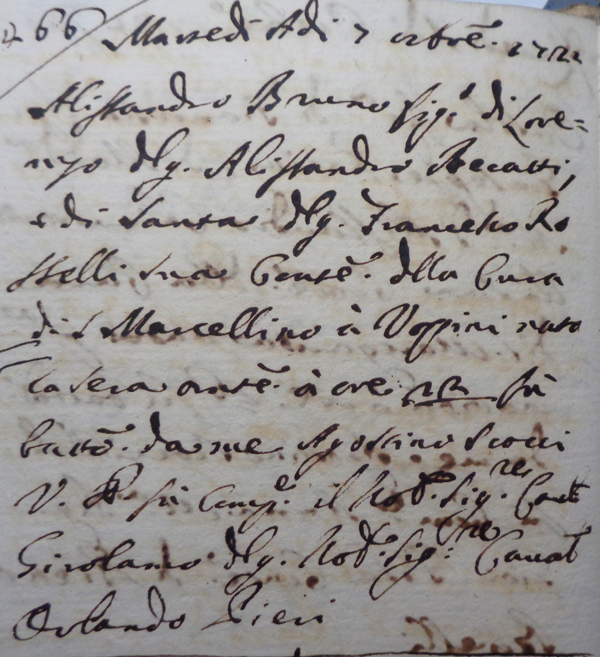 66 Martedì Adi 7 8bre. 1722
Alissandro Bruno fig.º di Lore=
nzo dl q. Alissandro Becatti,
e di Santa dl q. Francesco Ro
sselli, sua Conte. dlla Cura
di S Marcellino à Uppini nato
la sera ante. à ore fù
batto. da me Agostino Scocci
V. fù Comp.e il Nob. Sig.re Cav
Girolamo dl q. Nob. Sig.re Caval
Orlando Pieri